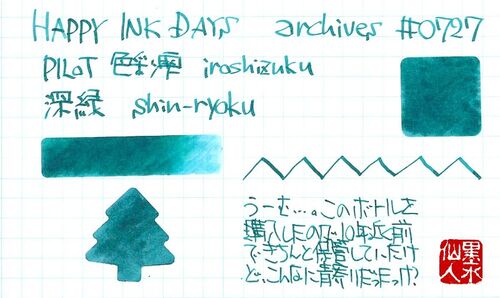 HAPPY INK DAYS archives #0727
PILOT 色彩雫 iroshizuku
深緑 shin-ryoku
うーむ…。このボトルを
購入したので10年近く前
できちんと保管していたけ
ど、こんなに青寄りだったっけ?
墨水
仙人